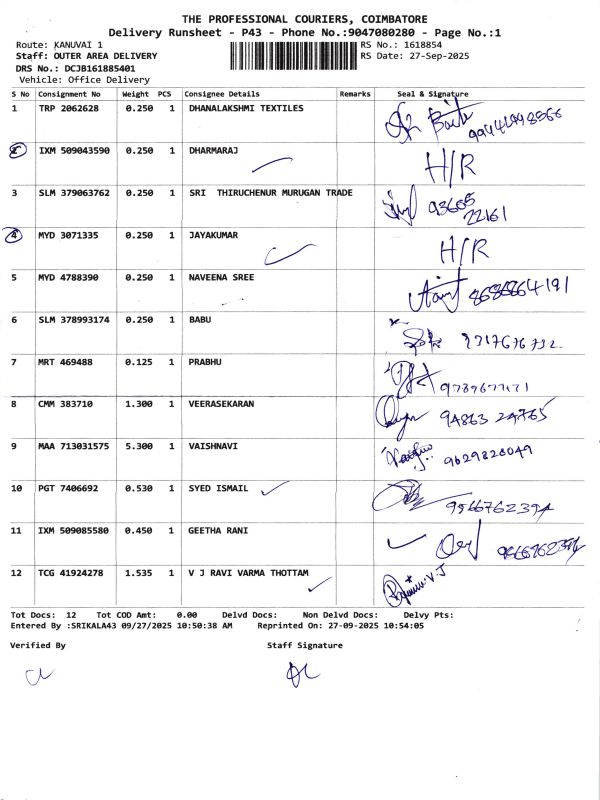 THE PROFESSIONAL COURIERS, COIMBATORE
Delivery Runsheet - P43 - Phone No.:9047080280 - Page No.:1
Route: KANUVAI 1 RS No.: 1618854
Staff: OUTER AREA DELIVERY RS Date: 27-Sep-2025
DRS No.: DCJB161885401
Vehicle: Office Delivery
S No Consignment No Weight PCS Consignee Details Remarks Seal & Signature
1 TRP 2062628 0.250 1 DHANALAKSHMI TEXTILES
2 IXM 509043590 0.250 1 DHARMARAJ H/R
3 SLM 379063762 0.250 1 SRI THIRUCHENUR MURUGAN TRADE 93605
22161
4 MYD 3071335 0.250 1 JAYAKUMAR H/R
5 MYD 4788390 0.250 1 NAVEENA SREE
6 SLM 378993174 0.250 1 BABU
7 MRT 469488 0.125 1 PRABHU
8 CMM 383710 1.300 1 VEERASEKARAN 94863 24765
9 MAA 713031575 5.300 1 VAISHNAVI 9629826049
10 PGT 7406692 0.530 1 SYED ISMAIL 9566762394
11 IXM 509085580 0.450 1 GEETHA RANI
12 TCG 41924278 1.535 1 V J RAVI VARMA THOTTAM
Tot Docs: 12 Tot COD Amt: 0.00 Delvd Docs: Non Delvd Docs: Delvy Pts:
Entered By :SRIKALA43 09/27/2025 10:50:38 AM Reprinted On: 27-09-2025 10:54:05
Verified By Staff Signature